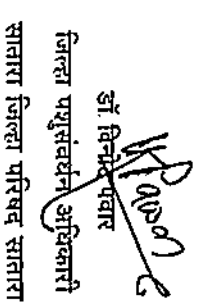 डॉ. विनोद पवार
जिल्हा पशुसंवर्धन अधिकारी
सातारा जिल्हा परिषद सातारा